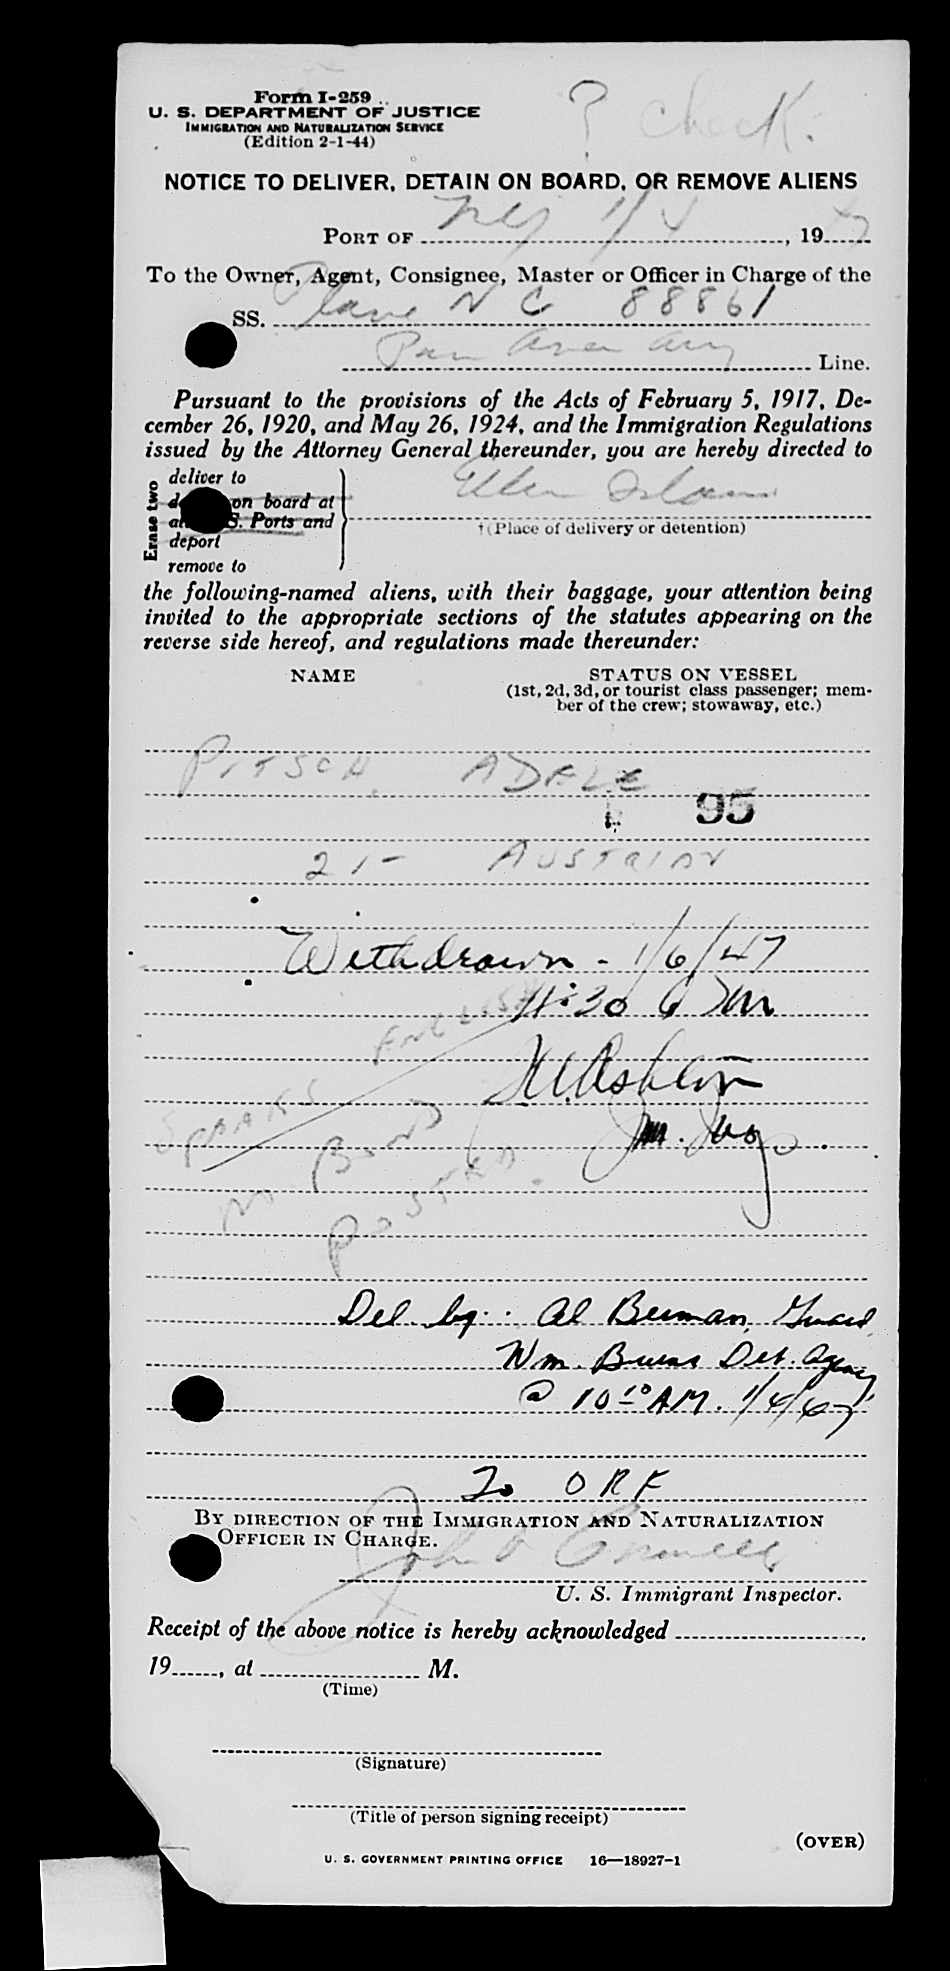 Form I-259
U. S. DEPARTMENT OF JUSTICE
IMMIGRATION AND NATURALIZATION SERVICE
(Edition 2-1-44)
? check.
NOTICE TO DELIVER, DETAIN ON BOARD, OR REMOVE ALIENS
PORT OF NY 1/4, 1947
To the Owner, Agent, Consignee, Master or Officer in Charge of the
SS. Plane N C 88861
Pan Amer Line.
Pursuant to the provisions of the Acts of February 5, 1917, De-
cember 26, 1920, and May 26, 1924, and the Immigration Regulations
issued by the Attorney General thereunder, you are hereby directed to
Erase two
deliver to
on board at
S. Ports and
deport
remove to
Ellis Island
†(Place of delivery or detention)
the following-named aliens, with their baggage, your attention being
invited to the appropriate sections of the statutes appearing on the
reverse side hereof, and regulations made thereunder:
NAME STATUS ON VESSEL
(1st, 2d, 3d, or tourist class passenger; mem-
ber of the crew; stowaway, etc.)
PITSCH, ADELE
95
21- AUSTRIAN
Withdrawn - 1/6/47
11:30
SPEAKS ENGLISH
No BOND
POSTED.
Del. by: Al Berman, Guard
Wm. Burns Det. Agency,
@ 10 10 AM. 1/4/47
To
BY DIRECTION OF THE IMMIGRATION AND NATURALIZATION
OFFICER IN CHARGE.
John
U. S. Immigrant Inspector.
Receipt of the above notice is hereby acknowledged
19, at M.
(Time)
(Signature)
(Title of person signing receipt)
(OVER)
U. S. GOVERNMENT PRINTING OFFICE 16—18927-1